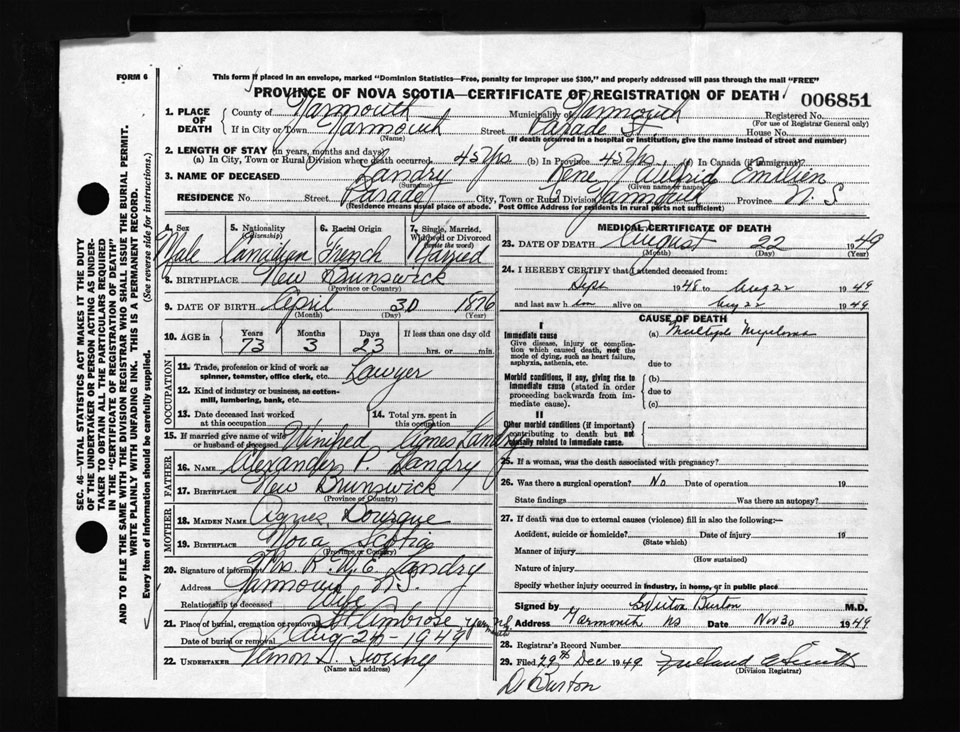 FORM 6
This form if placed in an envelope, marked "Dominion Statistics—Free, penalty for improper use $300," and properly addressed will pass through the mail "FREE"
PROVINCE OF NOVA SCOTIA—CERTIFICATE OF REGISTRATION OF DEATH
006851
1. PLACE OF DEATH County of Yarmouth Municipality of Yarmouth Registered No.
(For use of Registrar General only)
If in City or Town Yarmouth Street Parade St. House No.
(Name) (If death occurred in a hospital or institution, give the name instead of street and number)
2. LENGTH OF STAY (in years, months and days)
(a) In City, Town or Rural Division where death occurred 45 Yrs (b) In Province 45 Yrs (c) In Canada (if immigrant)
3. NAME OF DECEASED Landry Rene Wilfrid Emilien
(Surname) (Given name or names)
RESIDENCE No. Street Parade City, Town or Rural Division Yarmouth Province N. S
(Residence means usual place of abode. Post Office Address for residents in rural parts not sufficient)
4. Sex Male
5. Nationality (Citizenship) Canadian
6. Racial Origin French
7. Single, Married, Widowed or Divorced (write the word) Married
8. BIRTHPLACE New Brunswick
(Province or Country)
9. DATE OF BIRTH April 30 1876
(Month) (Day) (Year)
10. AGE in Years 73 Months 3 Days 23 If less than one day old hrs. or min.
OCCUPATION
11. Trade, profession or kind of work as spinner, teamster, office clerk, etc. Lawyer
12. Kind of industry or business, as cotton-mill, lumbering, bank, etc.
13. Date deceased last worked at this occupation
14. Total yrs. spent in this occupation
15. If married give name of wife or husband of deceased Winifred Agnes Landry
FATHER
16. NAME Alexander P. Landry
17. BIRTHPLACE New Brunswick
(Province or Country)
MOTHER
18. MAIDEN NAME Agnes Bourque
19. BIRTHPLACE Nova Scotia
(Province or Country)
20. Signature of informant Mrs. R. W. E. Landry
Address Yarmouth N.S.
Relationship to deceased Wife
21. Place of burial, cremation or removal St Ambrose Yarmouth
Date of burial or removal Aug-24-1949
22. UNDERTAKER Vernon L. Sweeney
(Name and address)
MEDICAL CERTIFICATE OF DEATH
23. DATE OF DEATH August 22 1949
(Month) (Day) (Year)
24. I HEREBY CERTIFY that I attended deceased from:
Sept 1948 to Aug 22 1949
and last saw him alive on Aug 22 1949
CAUSE OF DEATH
I
Immediate cause (a) Multiple Myeloma
Give disease, injury or complication which caused death, not the mode of dying, such as heart failure, asphyxia, asthenia, etc.
due to
Morbid conditions, if any, giving rise to immediate cause (stated in order proceeding backwards from immediate cause).
(b)
due to
(c)
II
Other morbid conditions (if important) contributing to death but not causally related to immediate cause.
25. If a woman, was the death associated with pregnancy?
26. Was there a surgical operation? No Date of operation 19
State findings Was there an autopsy?
27. If death was due to external causes (violence) fill in also the following:—
Accident, suicide or homicide? Date of injury 19
(State which)
Manner of injury
(How sustained)
Nature of injury
Specify whether injury occurred in industry, in home, or in public place
Signed by Burton M.D.
Address Yarmouth NS Date Nov 30 1949
28. Registrar's Record Number
29. Filed 29th Dec 1949 Smith
(Division Registrar)
Dr Burton
SEC. 46—VITAL STATISTICS ACT MAKES IT THE DUTY
OF THE UNDERTAKER OR PERSON ACTING AS UNDER-
TAKER TO OBTAIN ALL THE PARTICULARS REQUIRED
IN THE "CERTIFICATE OF REGISTRATION OF DEATH"
AND TO FILE THE SAME WITH THE DIVISION REGISTRAR WHO SHALL ISSUE THE BURIAL PERMIT.
WRITE PLAINLY WITH UNFADING INK. THIS IS A PERMANENT RECORD.
Every item of information should be carefully supplied. (See reverse side for instructions.)